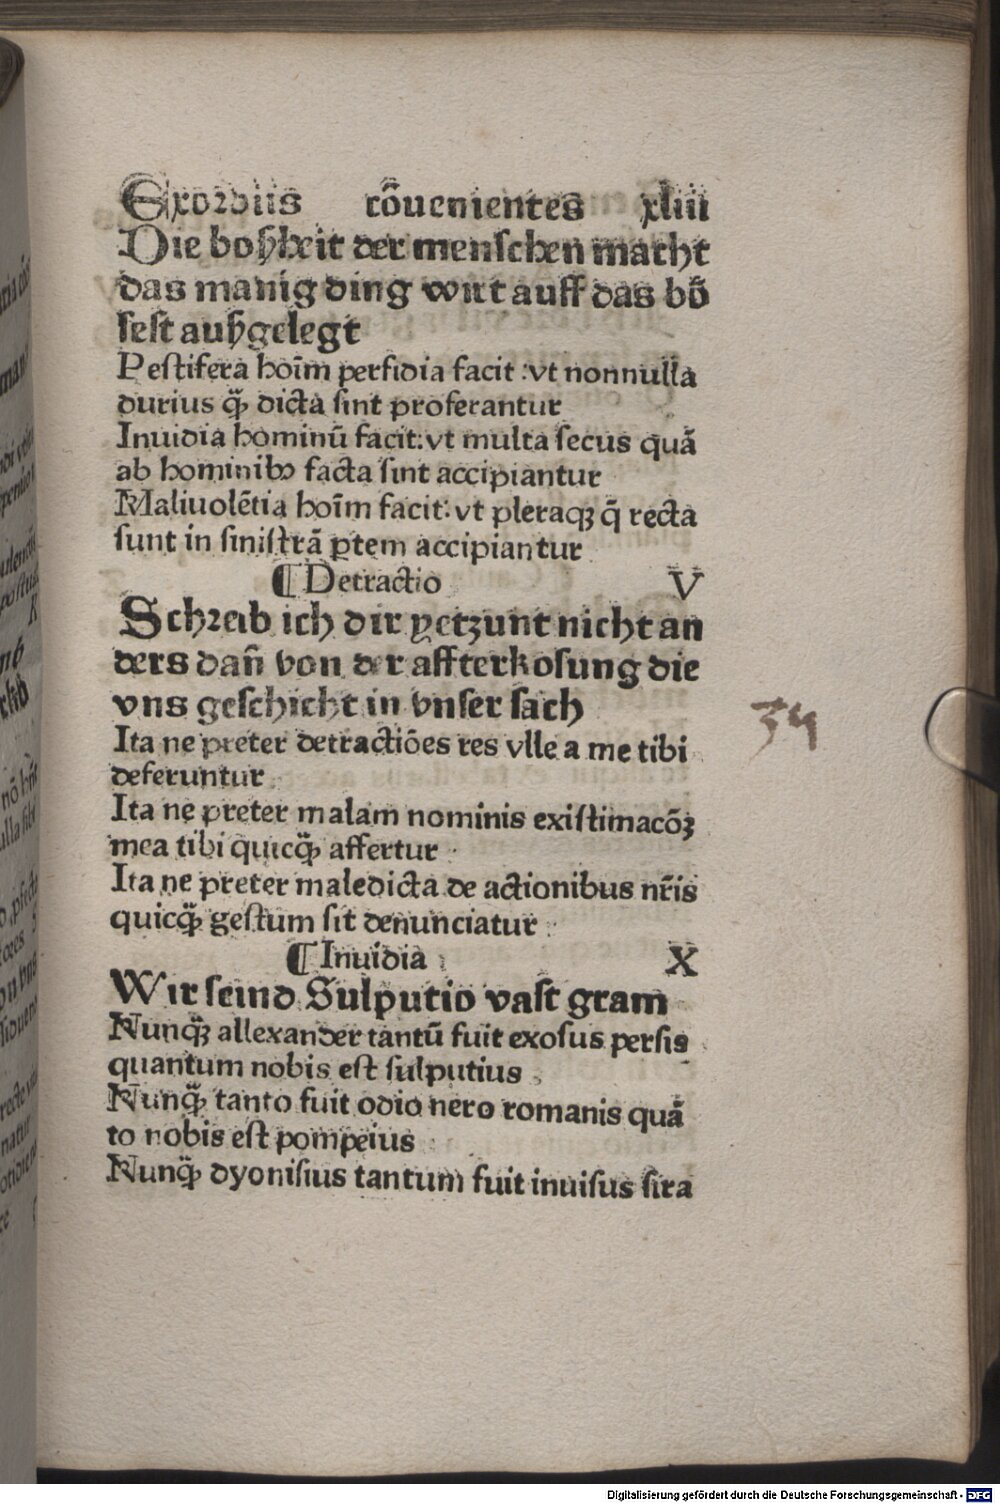 Exordiis cōuenientes xliiii
Die boßheit der menschen macht
das manig ding wirt auff das bö
sest außgelegt
Pestifera hoīm perfidia facit: vt nonnulla
durius q̄ꝫ dicta sint proferantur
Inuidia hominū facit: vt multa secus quā
ab hominibꝰ facta sint accipiantur
Maliuolētia hoīm facit: vt pleraqꝫ q̄ recta
sunt in sinistrā ꝑtem accipiantur
¶ Detractio V
Schreib ich dir yetzunt nicht an
ders dañ von der affterkosung die
vns geschicht in vnser sach
Ita ne preter detractiōes res vlle a me tibi
deferuntur
Ita ne preter malam nominis existimacōꝫ
mea tibi quicq̄ꝫ affertur
Ita ne preter maledicta de actionibus nr̄is
quicq̄ꝫ gestum sit denunciatur
¶ Inuidia X
Wir seind Sulputio vast gram
Nunq̄ꝫ allexander tantū fuit exosus persis
quantum nobis est sulputius
Nunq̄ꝫ tanto fuit odio nero romanis quā
to nobis est pompeius
Nunq̄ꝫ dyonisius tantum fuit inuisus sira
34
Digitalisierung gefördert durch die Deutsche Forschungsgemeinschaft - DFG